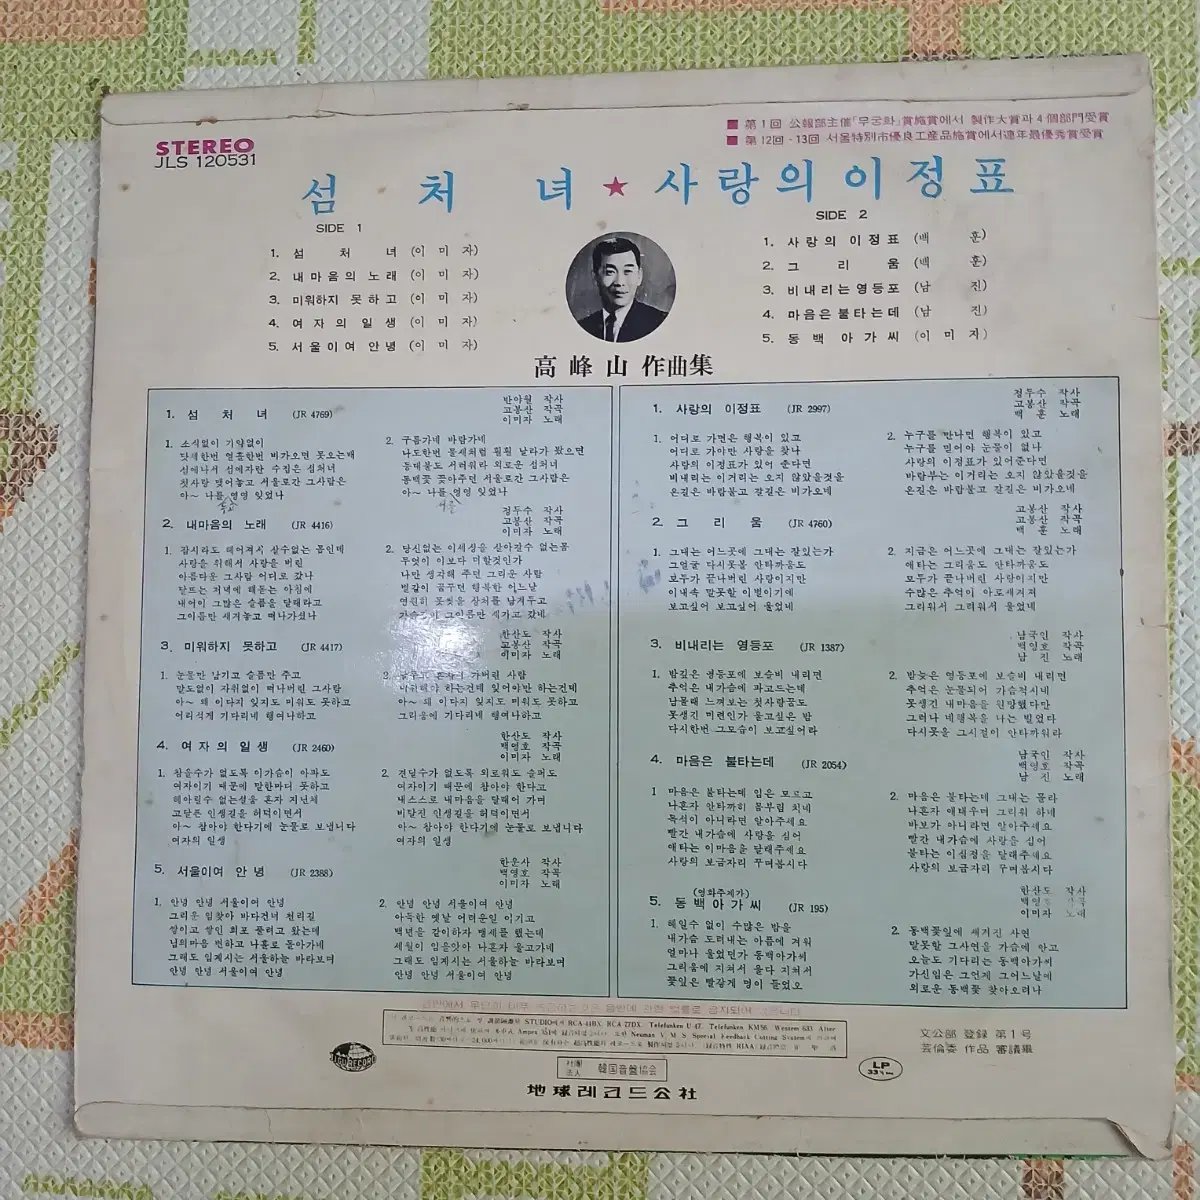 STEREO
JLS 120531
■ 第1回 公報部主催「무궁화」賞施賞에서 製作大賞과 4個部門受賞
■ 第12回 - 13回 서울特別市優良工産品施賞에서連年最優秀賞受賞
섬 처 녀 ★ 사랑의 이정표
SIDE 1
1. 섬 처 녀 (이 미 자)
2. 내마음의 노래 (이 미 자)
3. 미워하지 못하고 (이 미 자)
4. 여자의 일생 (이 미 자)
5. 서울이여 안녕 (이 미 자)
SIDE 2
1. 사랑의 이정표 (백 훈)
2. 그 리 움 (백 훈)
3. 비내리는영등포 (남 진)
4. 마음은불타는데 (남 진)
5. 동백아가씨 (이 미 자)
高峰山 作曲集
1. 섬 처 녀 (JR 4769)
반야월 작사
고봉산 작곡
이미자 노래
1. 소식없이 기약없이
닷새한번 열흘한번 비가오면 못오는배
섬에나서 섬에자란 수집은 섬처녀
첫사랑 맺어놓고 서울로간 그사람은
아～ 나를 영영 잊었나
2. 구름가네 바람가네
나도한번 물새처럼 훨훨 날라가 봤으면
등대불도 서러워라 외로운 섬처녀
동백꽃 꽂아주던 서울로간 그사람은
아～ 나를 영영 잊었나
2. 내마음의 노래 (JR 4416)
정두수 작사
고봉산 작곡
이미자 노래
1. 갈시라도 헤어져서 살수없는 몸인데
사랑을 위해서 사랑을 버린
아름다운 그사람 어디로 갔나
달뜨는 저녁에 해돋는 아침에
내어이 그많은 슬픔을 달래라고
그이름만 새겨놓고 떠나가셨나
2. 당신없는 이세상을 살아갈수 없는몸
무엇이 이보다 더할것인가
나만 생각해 주던 그리운 사람
별같이 꿈꾸던 행복한 어느날
영원히 못씻을 상처를 남겨두고
그이름만 새기고 갔네
3. 미워하지 못하고 (JR 4417)
한산도 작사
고봉산 작곡
이미자 노래
1. 눈물만 남기고 슬픔만 주고
말도없이 자취없이 떠나버린 그사람
아～ 왜 이다지 잊지도 미워도 못하고
어리석게 기다리네 행여나하고
가버린 사람
미워해야 하는건데 잊어야만 하는건데
아～ 왜 이다지 잊지도 미워도 못하고
그리움에 기다리네 행여나하고
4. 여자의 일생 (JR 2460)
한산도 작사
백영호 작곡
이미자 노래
1. 참을수가 없도록 이가슴이 아파도
여자이기 때문에 말한마디 못하고
헤아릴수 없는설움 혼자 지닌체
고달픈 인생길을 허덕이면서
아～ 참아야 한다기에 눈물로 보냅니다
여자의 일생
2. 견딜수가 없도록 외로워도 슬퍼도
여자이기 때문에 참아야 한다고
내스스로 내마음을 달래어 가며
비탈진 인생길을 허덕이면서
아～ 참아야 한다기에 눈물로 보냅니다
여자의 일생
5. 서울이여 안녕 (JR 2388)
한운사 작사
백영호 작곡
이미자 노래
1. 안녕 안녕 서울이여 안녕
그리운 임찾아 바다건너 천리길
쌓이고 쌓인 회포 풀려고 왔는데
님의마음 변하고 나홀로 돌아가네
그래도 임계시는 서울하늘 바라보며
안녕 안녕 서울이여 안녕
2. 안녕 안녕 서울이여 안녕
아득한 옛날 어려운일 이기고
백년을 같이하자 맹세를 했는데
세월이 임을앗아 나혼자 울고가네
그래도 임계시는 서울하늘 바라보며
안녕 안녕 서울이여 안녕
1. 사랑의 이정표 (JR 2997)
정두수 작사
고봉산 작곡
백 훈 노래
1. 어디로 가면은 행복이 있고
어디로 가야만 사랑을 찾나
사랑의 이정표가 있어 준다면
비내리는 이거리는 오지 않았을것을
온길은 바람불고 갈길은 비가오네
2. 누구를 만나면 행복이 있고
누구를 믿어야 눈물이 없나
사랑의 이정표가 있어준다면
바람부는 이거리는 오지 않았을것을
온길은 바람불고 갈길은 비가오네
2. 그 리 움 (JR 4760)
고봉산 작사
고봉산 작곡
백 훈 노래
1. 그대는 어느곳에 그대는 잘있는가
그얼굴 다시못볼 안타까움도
모두가 끝나버린 사랑이지만
이내속 말못할 이별이기에
보고싶어 보고싶어 울었네
2. 지금은 어느곳에 그대는 잘있는가
애타는 그리움도 안타까움도
모두가 끝나버린 사랑이지만
수많은 추억이 아로새겨져
그리워서 그리워서 울었네
3. 비내리는 영등포 (JR 1387)
남국인 작사
백영호 작곡
남 진 노래
1. 밤깊은 영등포에 보슬비 내리면
추억은 내가슴에 파고드는데
남몰래 느껴보는 첫사랑꿈도
못생긴 미련인가 울고싶은 밤
다시한번 그모습이 보고싶어라
2. 밤늦은 영등포에 보슬비 내리면
추억은 눈물되어 가슴적시네
못생긴 내마음을 원망했다만
그러나 네행복을 나는 빌었다
다시못올 그시절이 안타까워라
4. 마음은 불타는데 (JR 2054)
남국인 작사
백영호 작곡
남 진 노래
1 마음은 불타는데 임은 모르고
나혼자 안타까히 몸부림 치네
목석이 아니라면 알아주세요
빨간 내가슴에 사랑을 심어
애타는 이마음을 달래주세요
사랑의 보금자리 꾸며봅시다
2. 마음은 불타는데 그대는 몰라
나혼자 애태우며 그리워 하네
바보가 아니라면 알아주세요
빨간 내가슴에 사랑을 심어
불타는 이심정을 달래주세요
사랑의 보금자리 꾸며봅시다
(영화주제가)
5. 동백아가씨 (JR 195)
한산도 작사
백영호 작곡
이미자 노래
1. 헤일수 없이 수많은 밤을
내가슴 도려내는 아픔에 겨워
얼마나 울었던가 동백아가씨
그리움에 지쳐서 울다 지쳐서
꽃잎은 빨갛게 멍이 들었오
2. 동백꽃잎에 새겨진 사연
말못할 그사연을 가슴에 안고
오늘도 기다리는 동백아가씨
가신임은 그언제 그어느날에
외로운 동백꽃 찾아오려나
STUDIO에서 RCA-44BX, RCA-77DX, Telefunken U-47, Telefunken KM56, Western 633, Alter
Ampex 351에 Neuman V.M.S Special Feedback Cutting System
社團法人 韓国音盤協会
地球레코드公社
文公部 登録 第1号
芸倫委 作品 審議畢
LP
33⅓